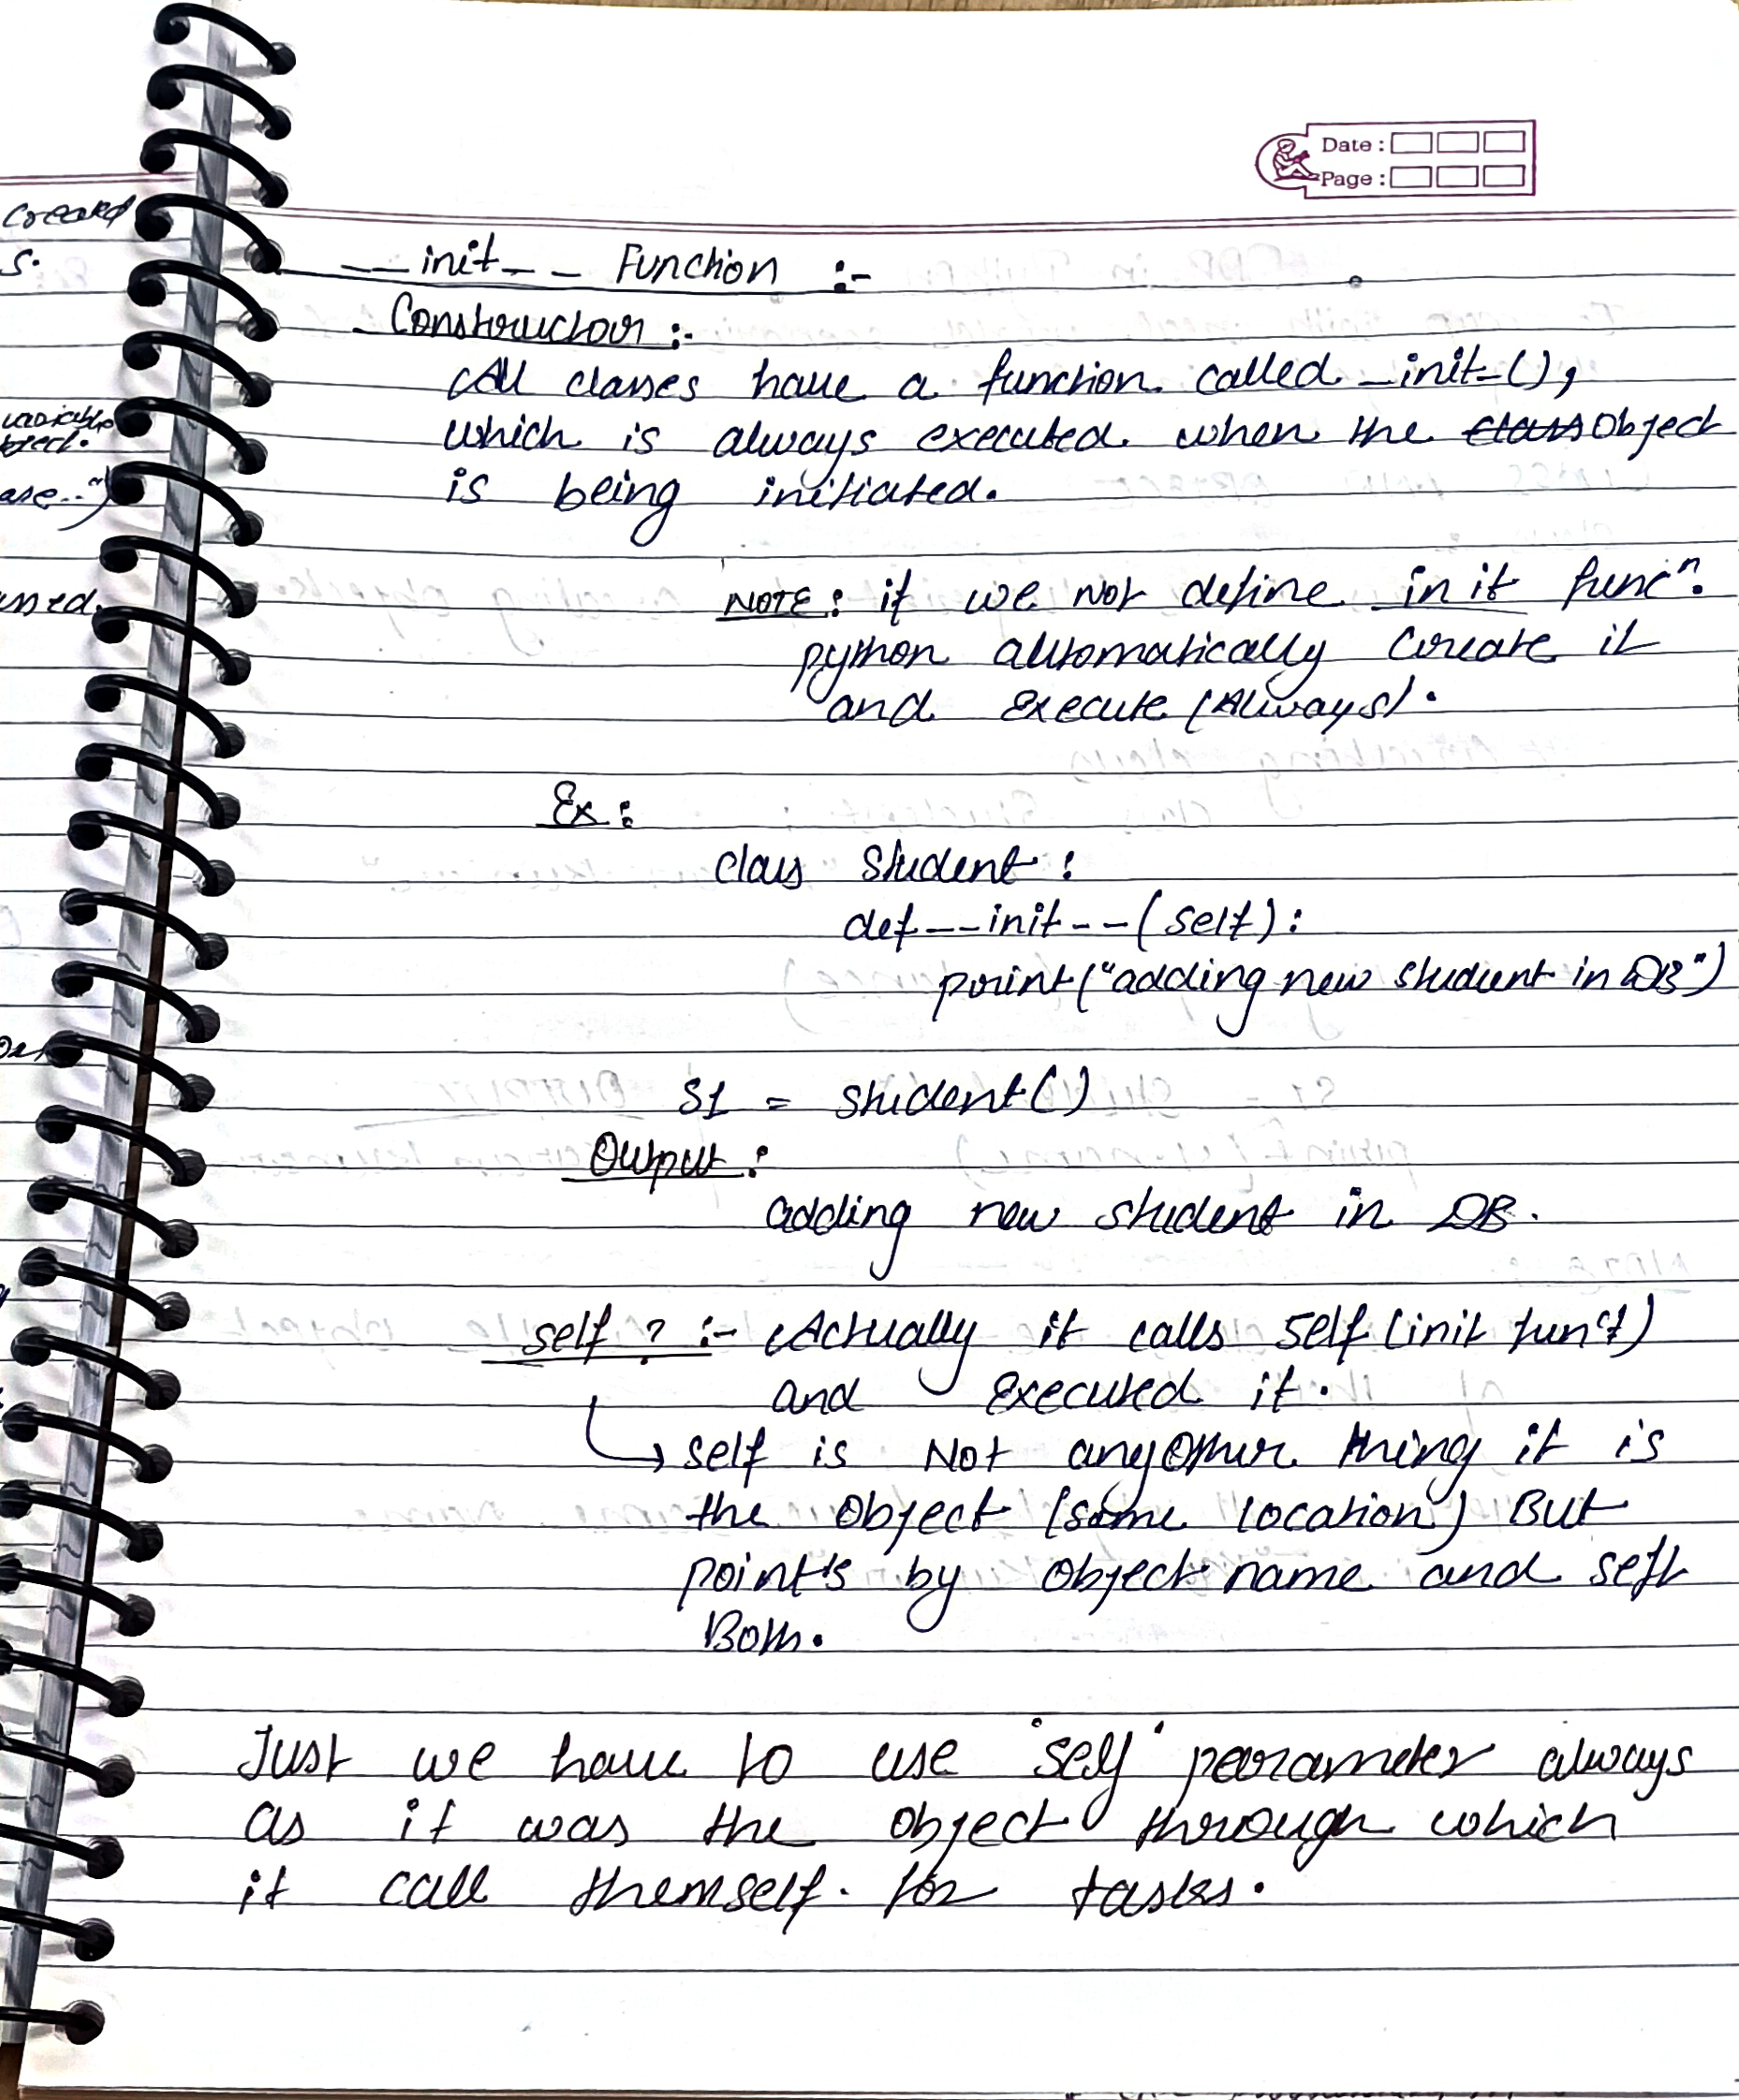 Date :
Page :
creared
s.
__init__ Function :-
Constructor :-
variable
All classes have a function called _init_(),
which is always executed when the class Object
ase..")
is being initiated.
NOTE : if we Not define init funcⁿ.
python automatically Create it
and Execute (Always).
Ex :
class Student :
def __init__(self) :
print("adding new student in DB")
S1 = student()
Output :
adding new student in DB.
self ? :- Actually it calls self (init fun't)
and Executed it.
→ self is Not anyother thing it is
the Object (same location) But
point's by Object name and self
Both.
Just we have to use 'self' parameter always
as it was the object through which
it call themself. for tasks.